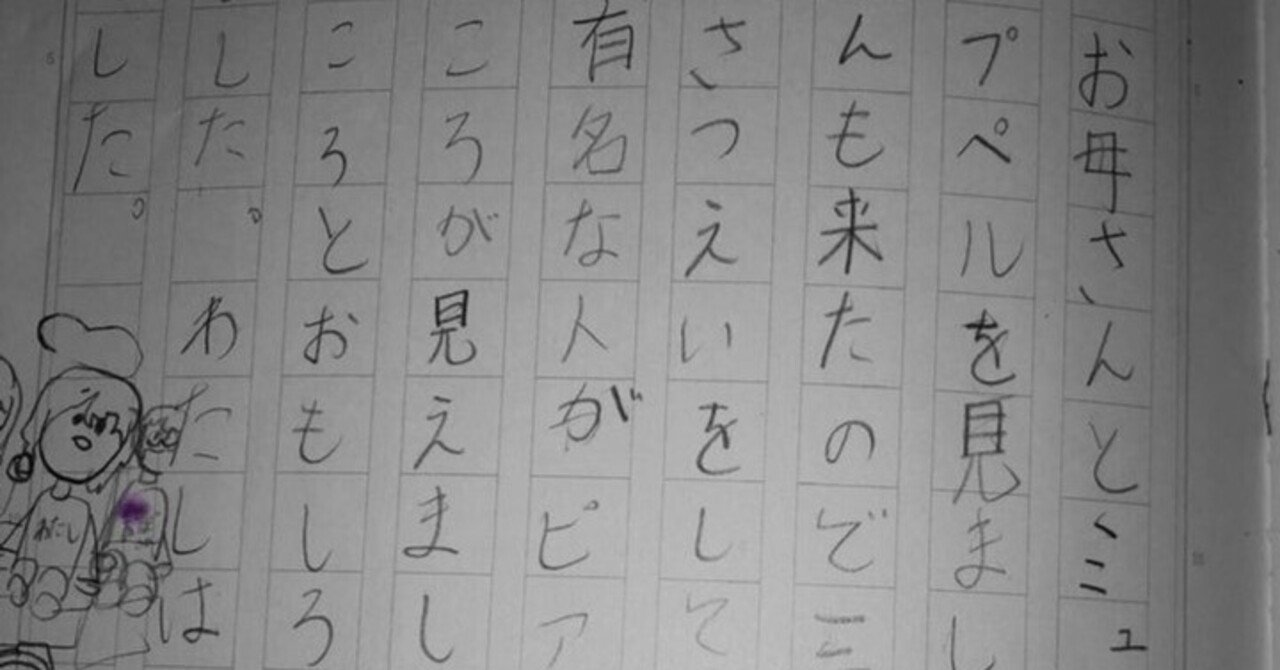 お母さんとミュ
プペルを見まし
んも来たのでニ
さつえいをして
有名な人がピア
ころが見えまし
ころとおもしろ
した。わたしは
した。
わたし